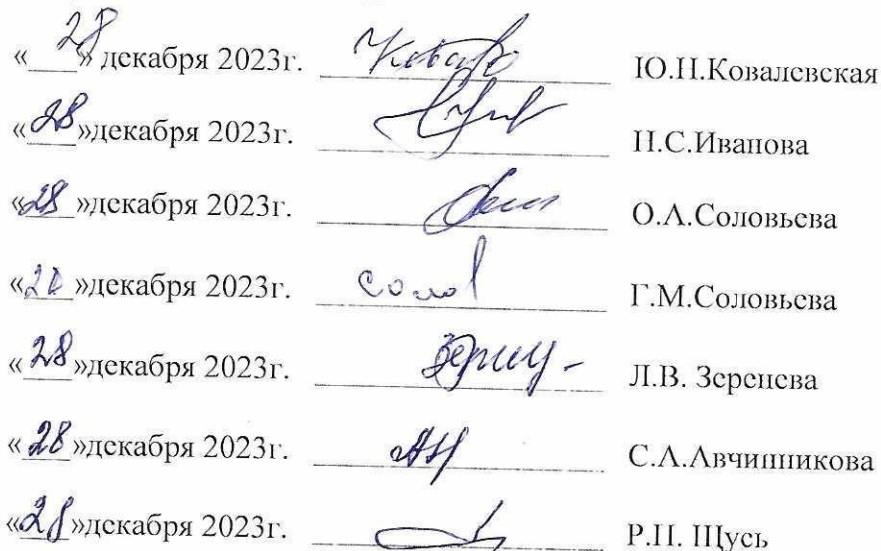 «28» декабря 2023г. Ю.Н.Ковалевская
«28»декабря 2023г. Н.С.Иванова
«28»декабря 2023г. О.А.Соловьева
«28»декабря 2023г. Солов Г.М.Соловьева
«28»декабря 2023г. Л.В. Зеренева
«28»декабря 2023г. С.А.Авчинникова
«28»декабря 2023г. Р.П. Щусь